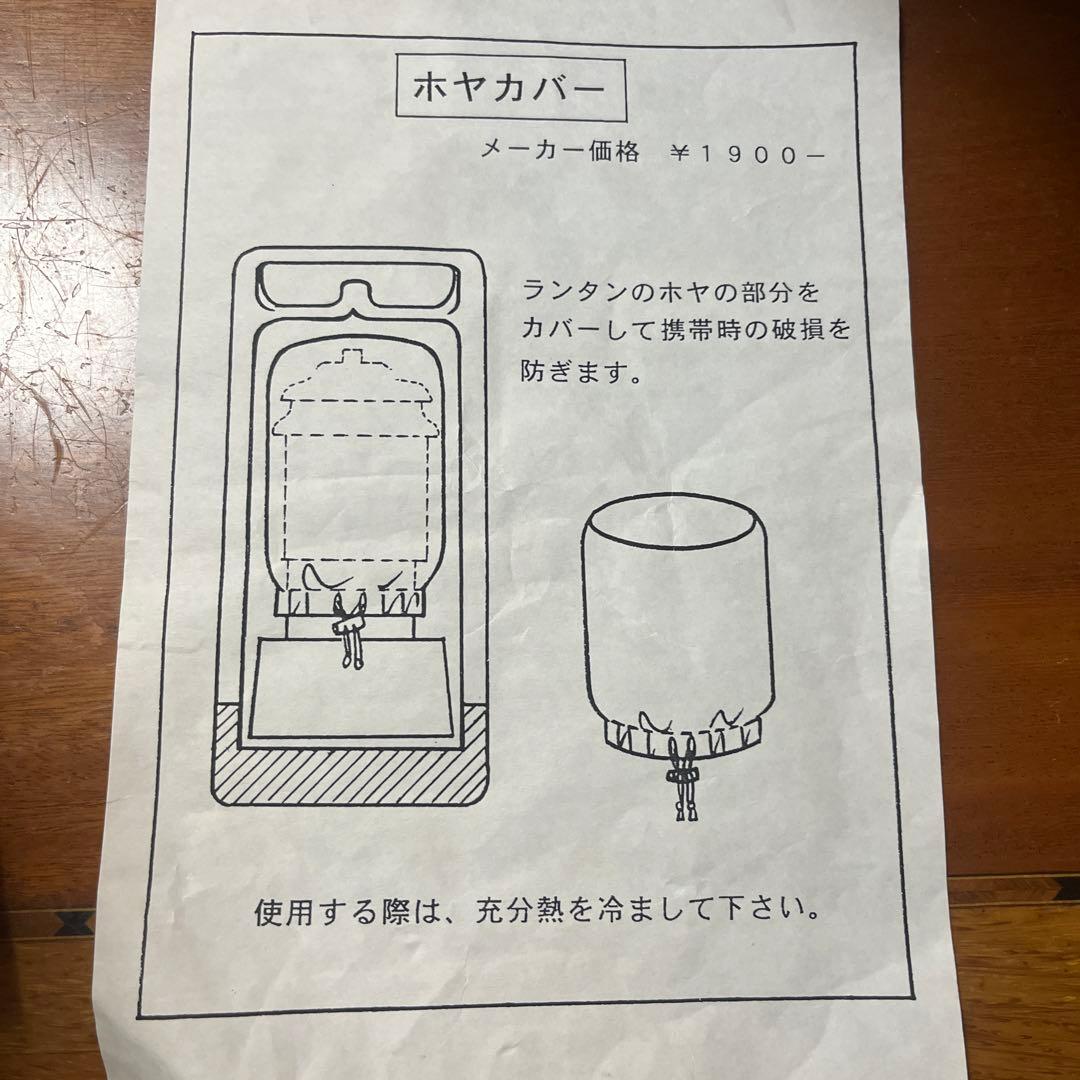 ホヤカバー
メーカー価格　￥１９００－
ランタンのホヤの部分を
カバーして携帯時の破損を
防ぎます。
使用する際は、充分熱を冷まして下さい。